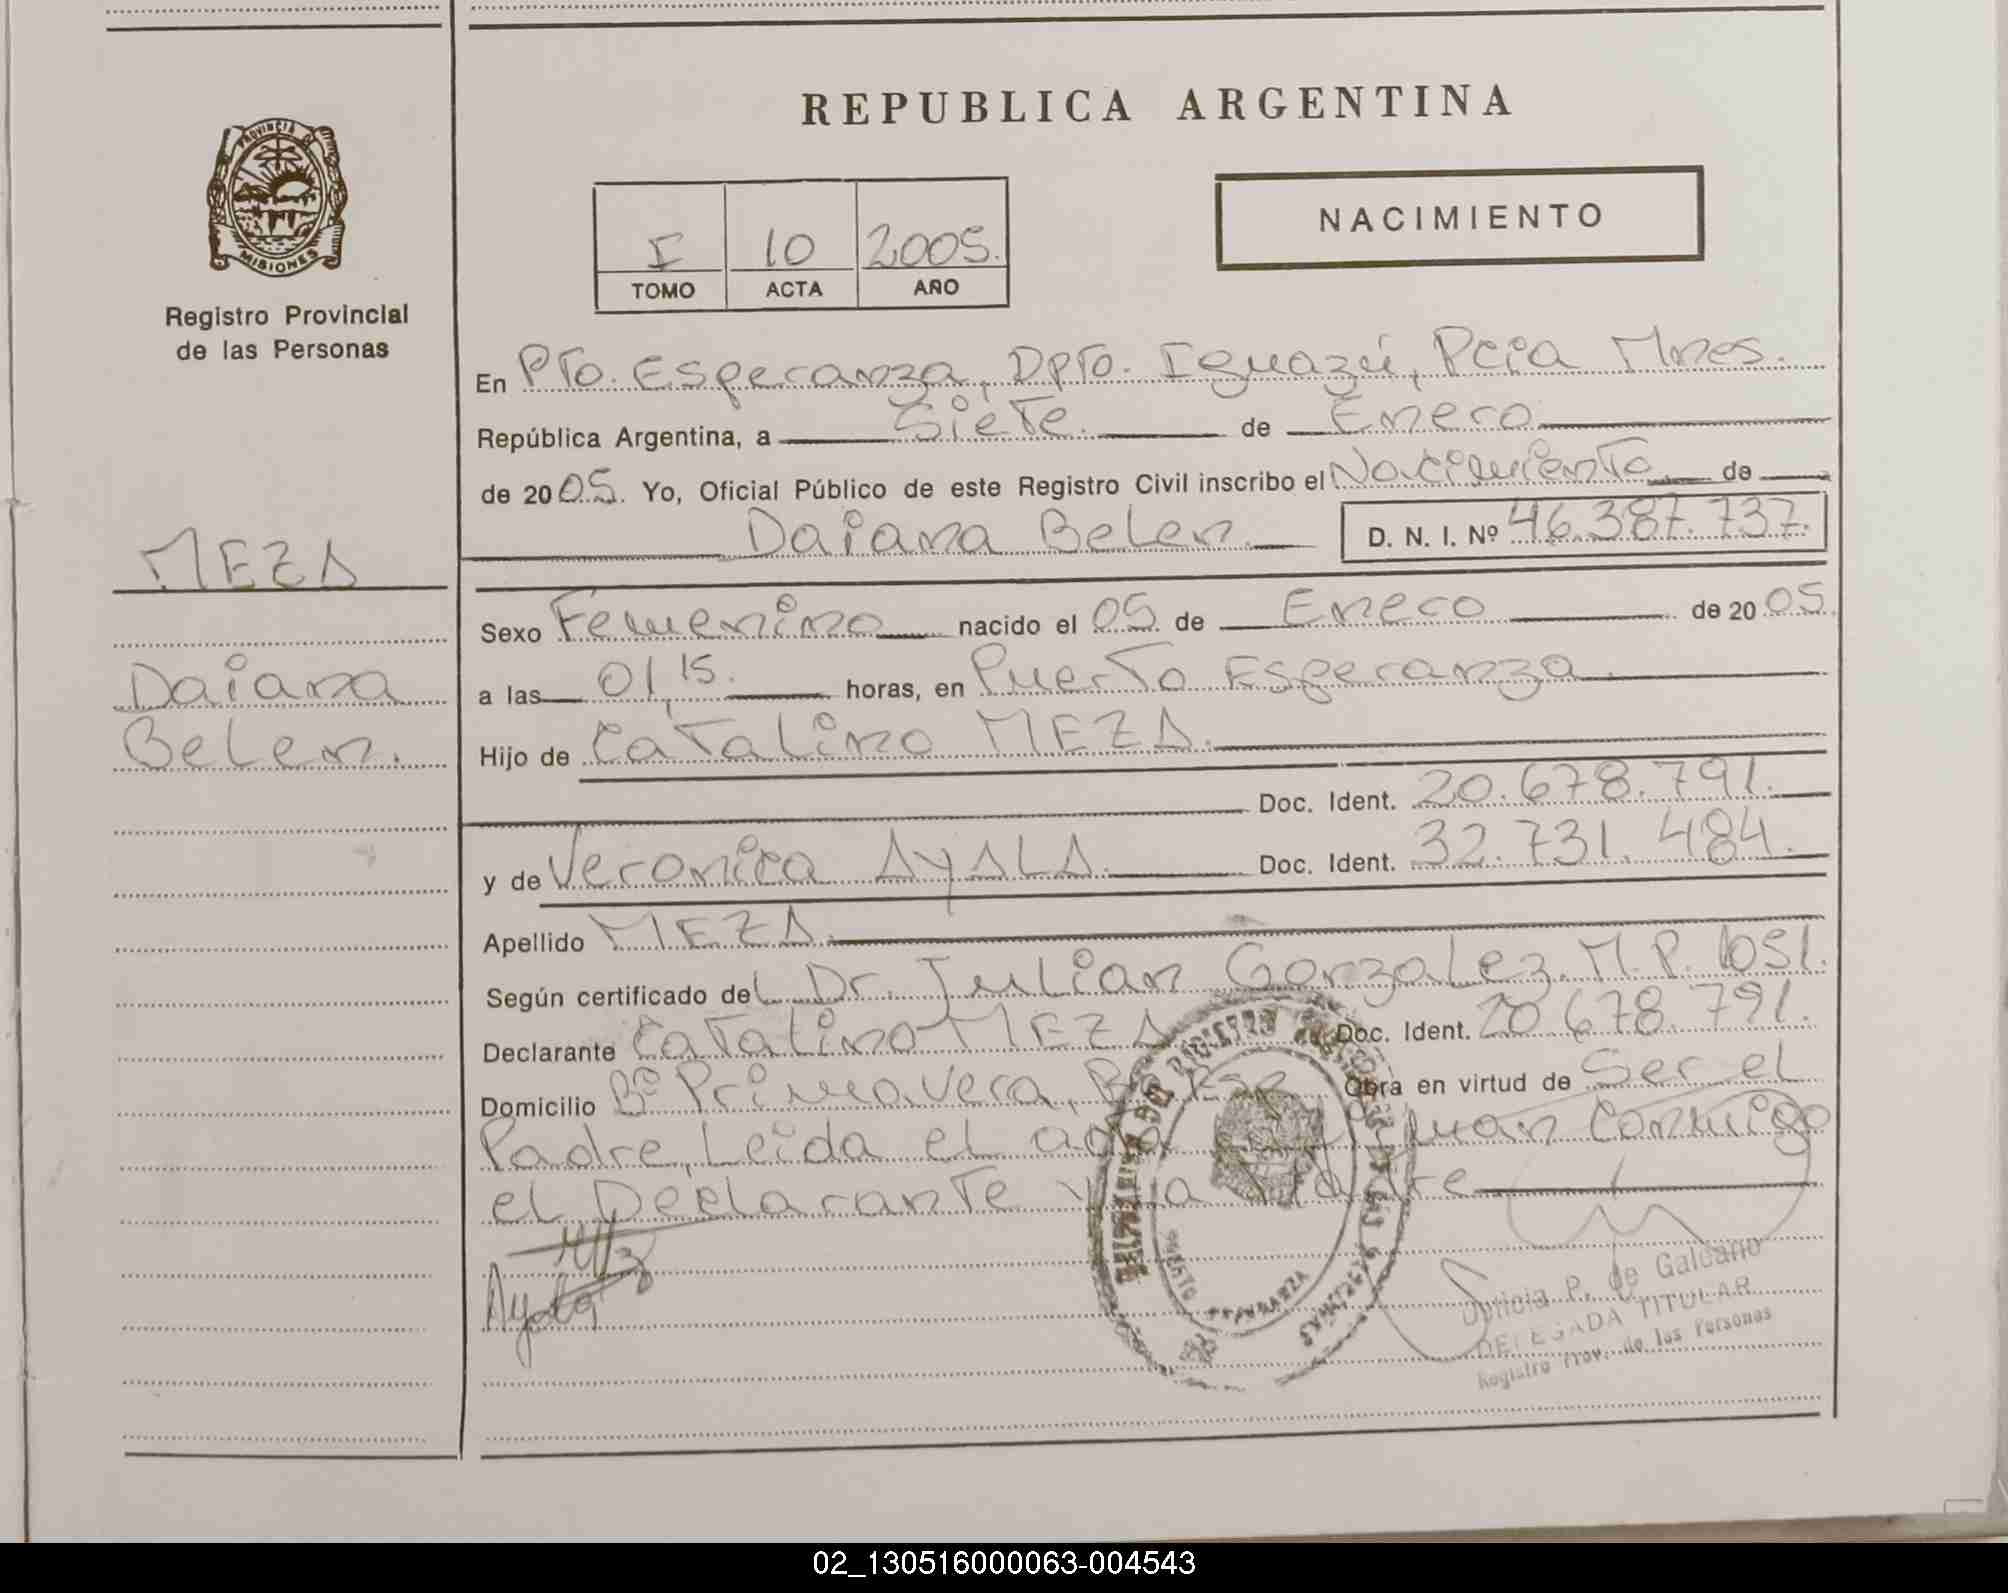 REPUBLICA ARGENTINA
PROVINCIA DE
MISIONES
Registro Provincial
de las Personas
I 10 2005.
TOMO ACTA AÑO
NACIMIENTO
En Pto. Esperanza, Dpto. Iguazú, Pcia Mnes.
República Argentina, a Siete de Enero
de 2005. Yo, Oficial Público de este Registro Civil inscribo el Nacimiento de
Daiana Belen. D. N. I. Nº 46.387.737.
MEZA
Daiana
Belen.
Sexo Femenino nacido el 05 de Enero de 2005.
a las 01,15. horas, en Puerto Esperanza.
Hijo de Catalino MEZA.
Doc. Ident. 20.678.791.
y de Veronica AYALA. Doc. Ident. 32.731.484.
Apellido MEZA.
Según certificado del Dr. Julian Gonzalez. M.P. 1051.
Declarante Catalino MEZA Doc. Ident. 20.678.791.
Domicilio Bº Primavera, Obra en virtud de Ser el
Padre, Leida el acta Conmigo
el Declarante y la Madre
Ayala
PUERTO ESPERANZA
P. de Galeano
DELEGADA TITULAR
Registro Prov. de las Personas
02_130516000063-004543